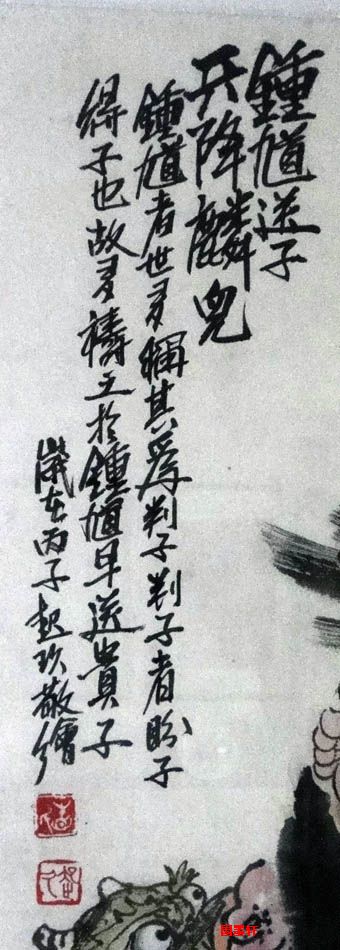 鍾馗送子
天降麟兒
鍾馗者世多稱其為判子判子者盼子
得子也故多禱之於鍾馗早送貴子
歲在丙子起玖敬繪